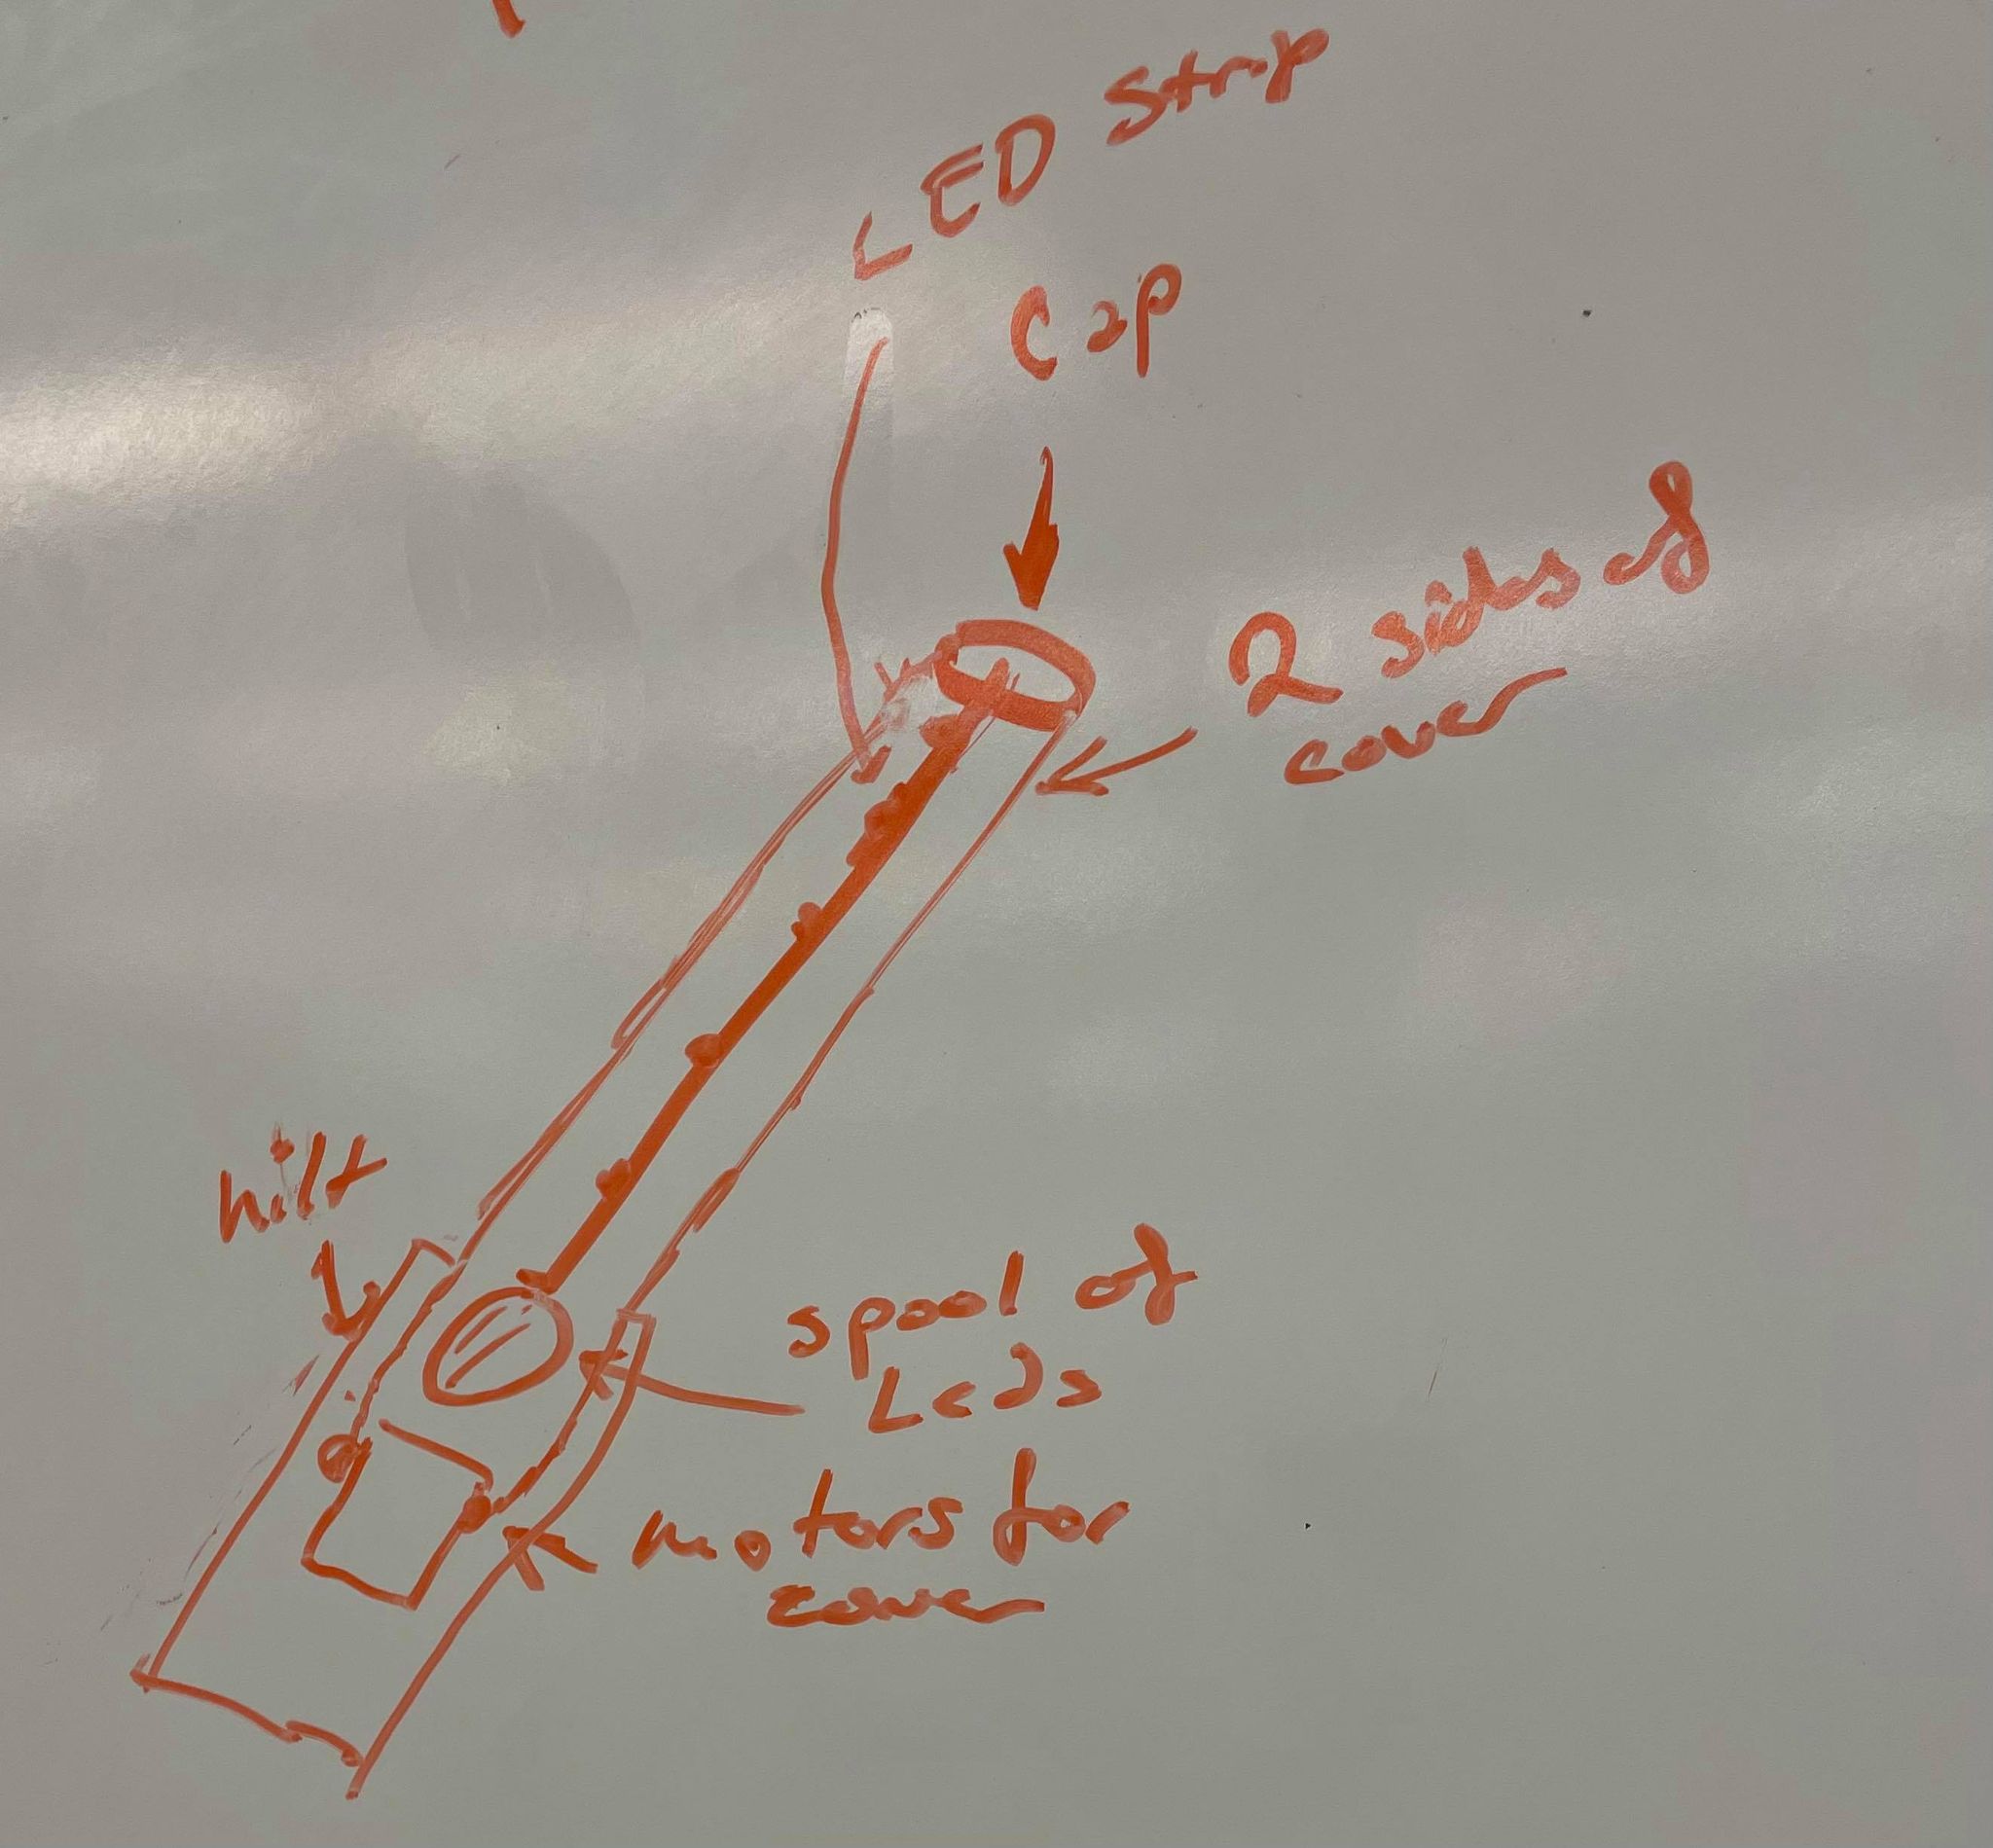 LED Strip
Cap
2 sides of
cover
hilt
spool of
Leds
motors for
cover